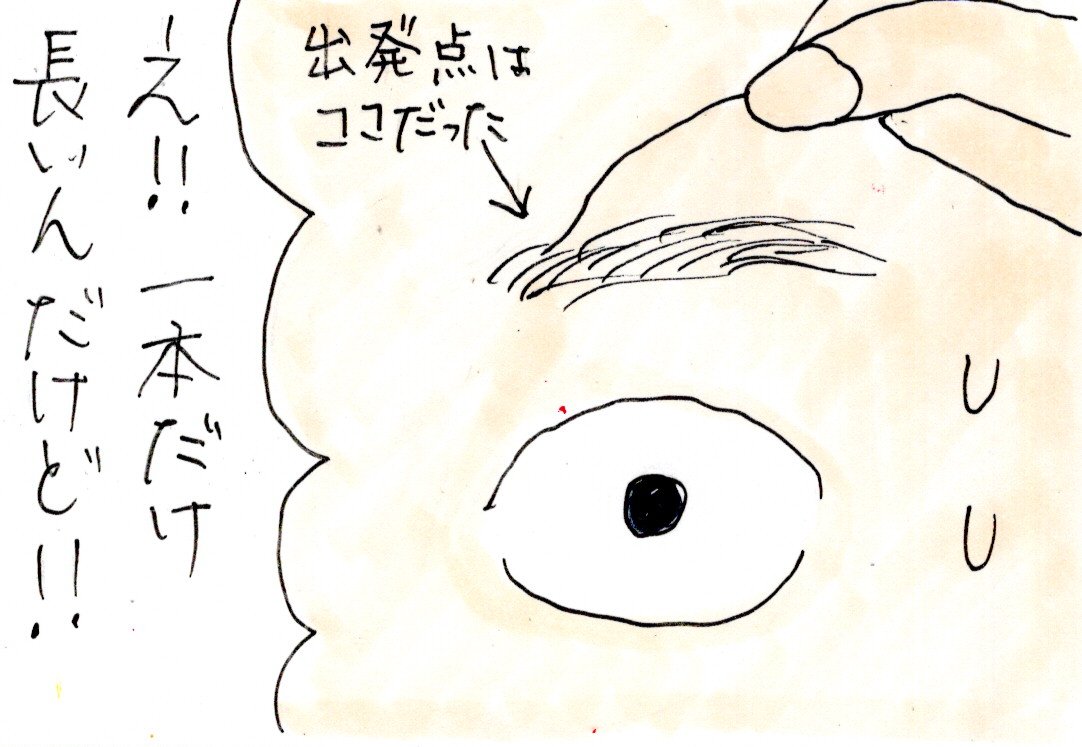 え!! 一本だけ
長いんだけど!!
出発点は
ココだった